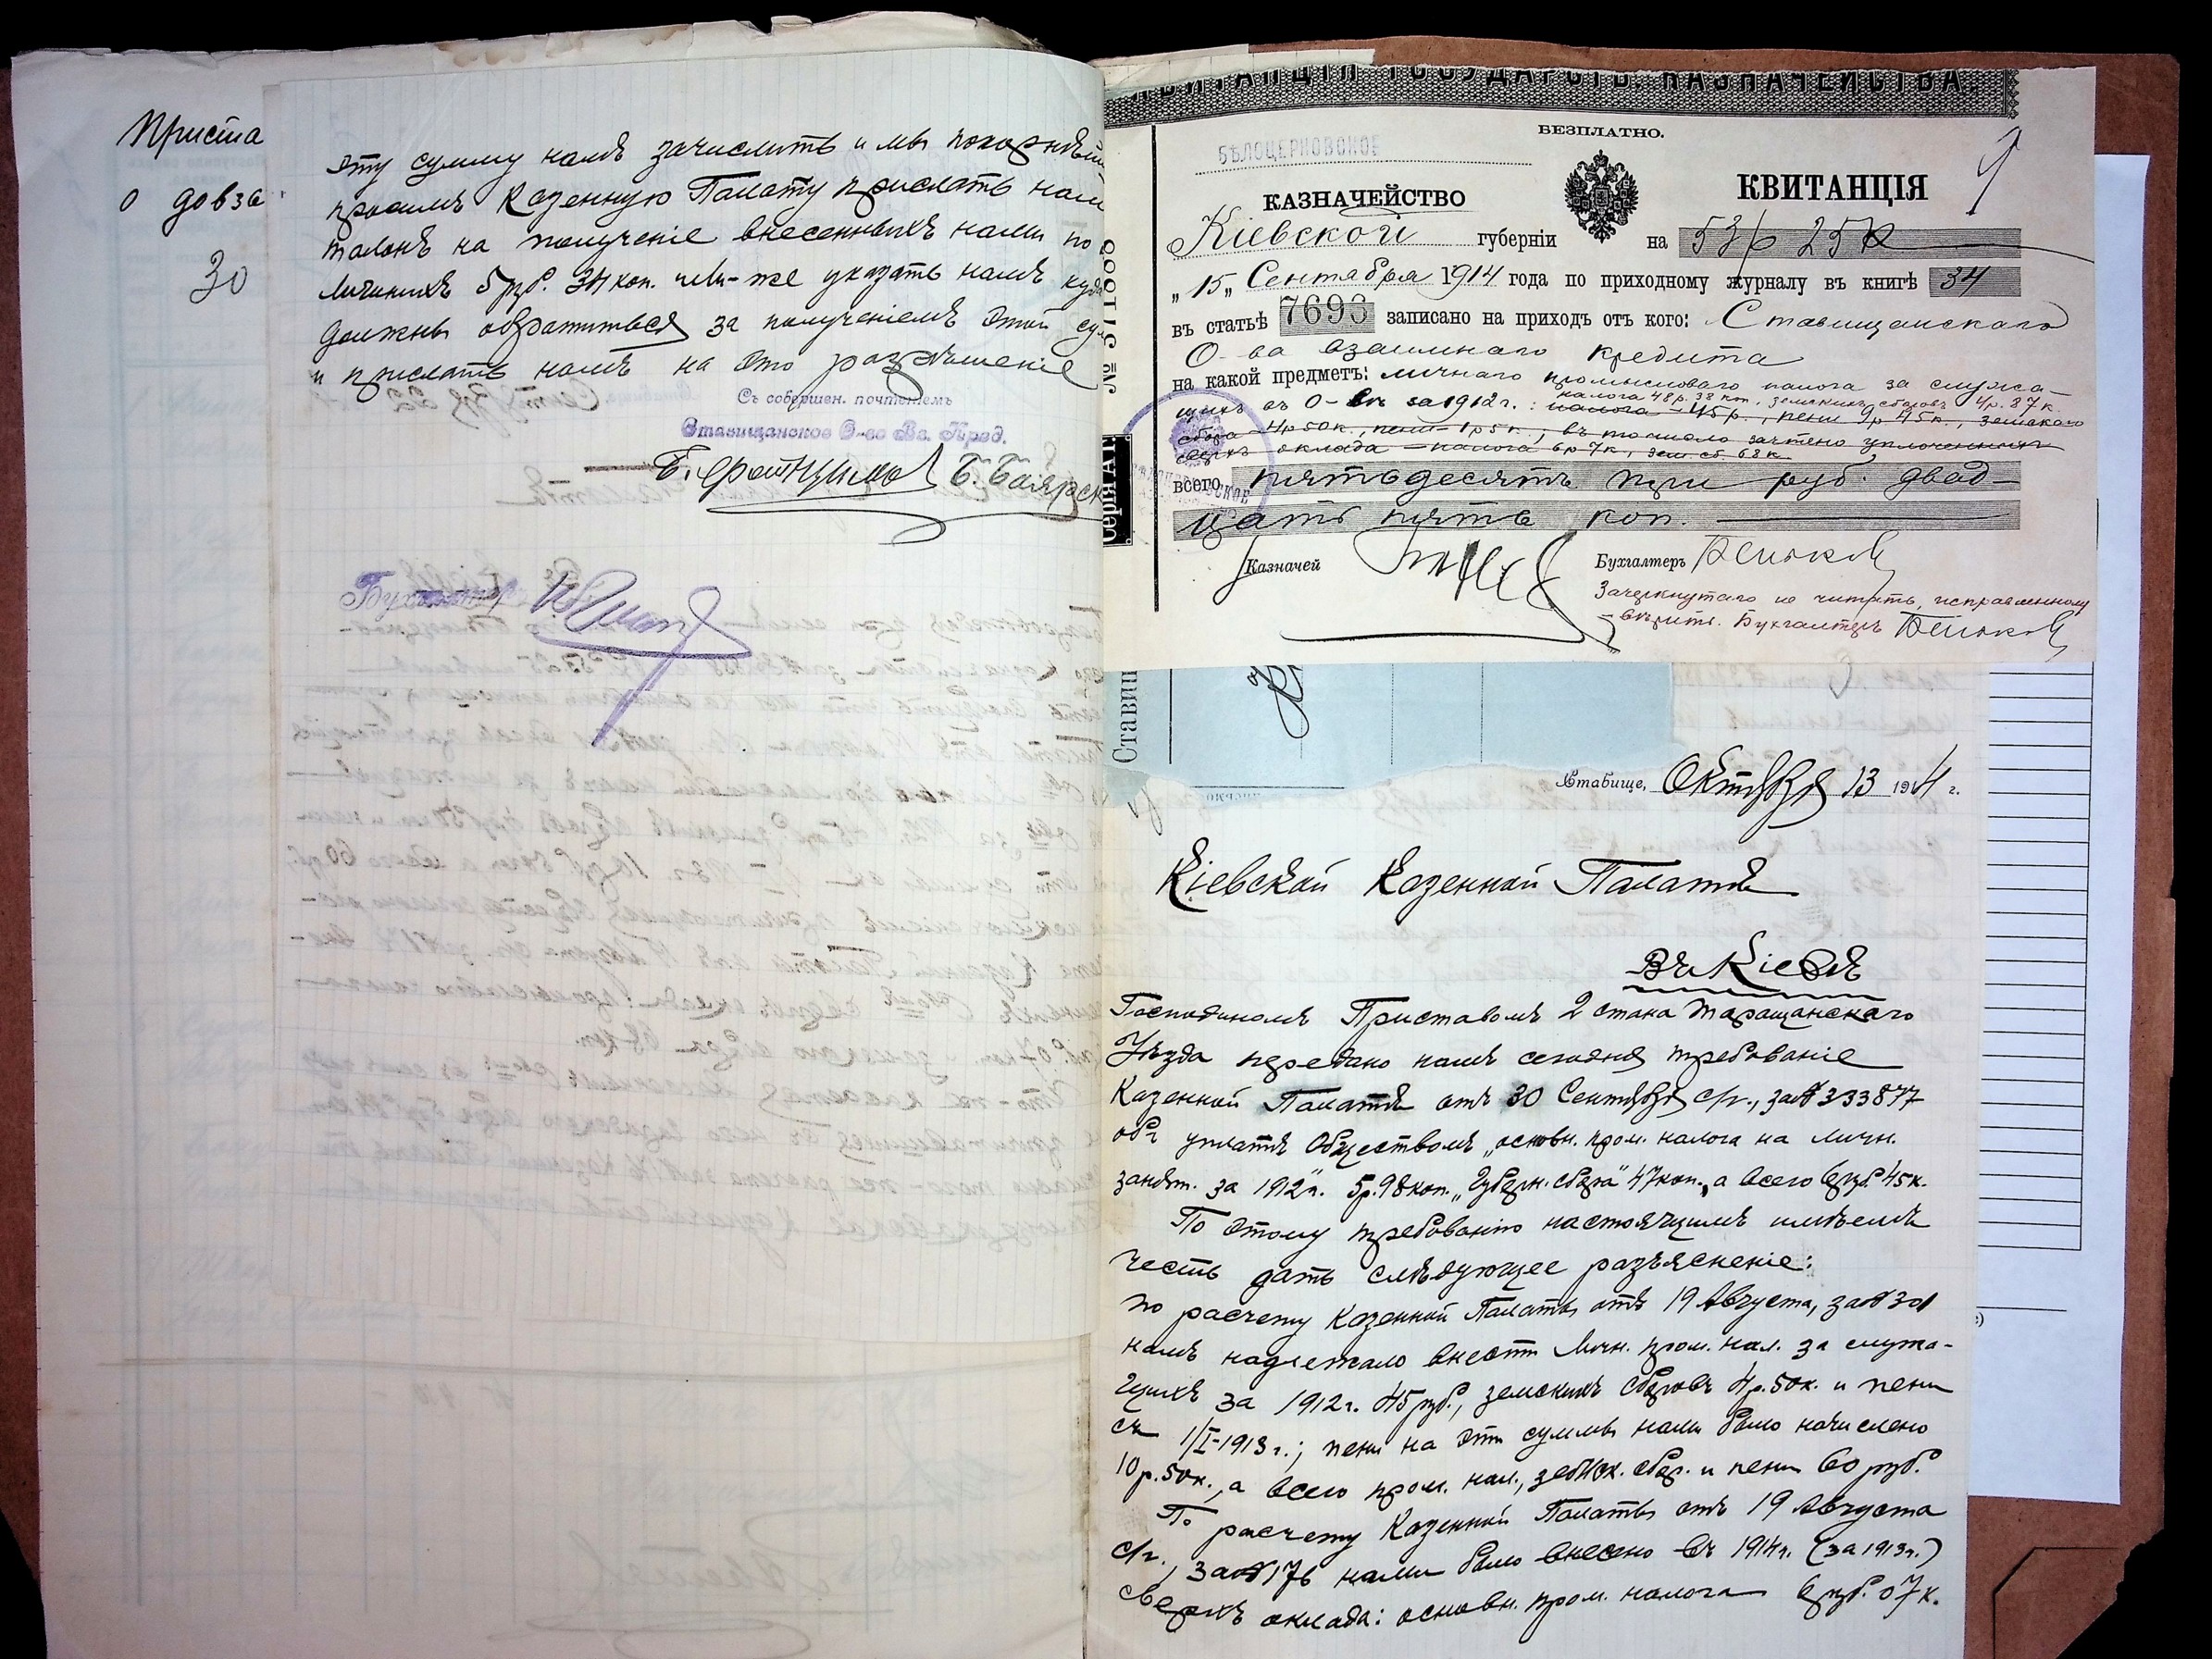 Приста
о довзы
30
эту сумму намъ зачислить и мы покорнѣйше
просимъ Казенную Палату прислать намъ
талонъ на полученіе внесенныхъ нами по
личныхъ 5 руб. 34 коп. или-же указать намъ куда
должны обратиться за полученіемъ этой сум
и прислать намъ на это разрѣшеніе
Съ собершен. почтеніемъ
Ставищанское О-во Вз. Кред.
Б. Боярск
Бухгалтеръ
КВИТАНЦІЯ ГОСУДАРСТВ. КАЗНАЧЕЙСТВА.
БЕЗПЛАТНО.
БѢЛОЦЕРКОВСКОЕ
9
КАЗНАЧЕЙСТВО КВИТАНЦІЯ
Кіевской губерніи на 53 р 25 к
„15„ Сентября 1914 года по приходному журналу въ книгѣ 34
въ статьѣ 7693 записано на приходъ отъ кого: Ставищанскаго
О-ва взаимнаго кредита
на какой предметъ: личнаго промысловаго налога за служа-
налога 48 р. 38 коп., земскихъ сборовъ 4 р. 87 к.
щихъ въ О-вѣ за 1912 г.: налога - 45 р., пени 9 р 45 к., земскаго
сбора - 4 р 50 к., пени - 1 р 5 к., въ то число зачтено уплоченныхъ
сверхъ оклада - налога 6 р 7 к, зем. сб. 68 к.
всего пятьдесятъ три руб. двад-
цать пять коп.
Казначей Бухгалтеръ
Зачеркнутаго не читать, исправленному
- вѣрить. Бухгалтеръ
Серія АГ.
№
Ставищ
Ставище, Октября 13 1914 г.
Кіевской Казенной Палатѣ
Въ Кіевѣ
Господиномъ Приставомъ 2 стана Таращанскаго
Уѣзда передано намъ сегодня требованіе
Казенной Палатѣ отъ 30 Сентября с/г., за № 333877
объ уплатѣ Обществомъ „основн. пром. налога на личн.
занят. за 1912 г." 5 р. 98 коп. „Губерн. сбора" 47 коп., а всего 6 руб. 45 к.
По этому требованію настоящимъ имѣемъ
честь дать слѣдующее разъясненіе:
по расчету Казенной Палаты отъ 19 Августа, за № 301
намъ надлежало внести личн. пром. нал. за служа-
щихъ за 1912 г. 45 руб., земскихъ сборовъ 4 р. 50 к. и пени
съ 1/I-1913 г.; пени на эти суммы нами было начислено
10 р. 50 к., а всего пром. нал., земск. сбор. и пени 60 руб.
По расчету Казенной Палаты отъ 19 Августа
с/г., за № 176 нами было внесено въ 1914 г. (за 1913 г.)
сверхъ оклада: основн. пром. налога 6 руб. 07 к.